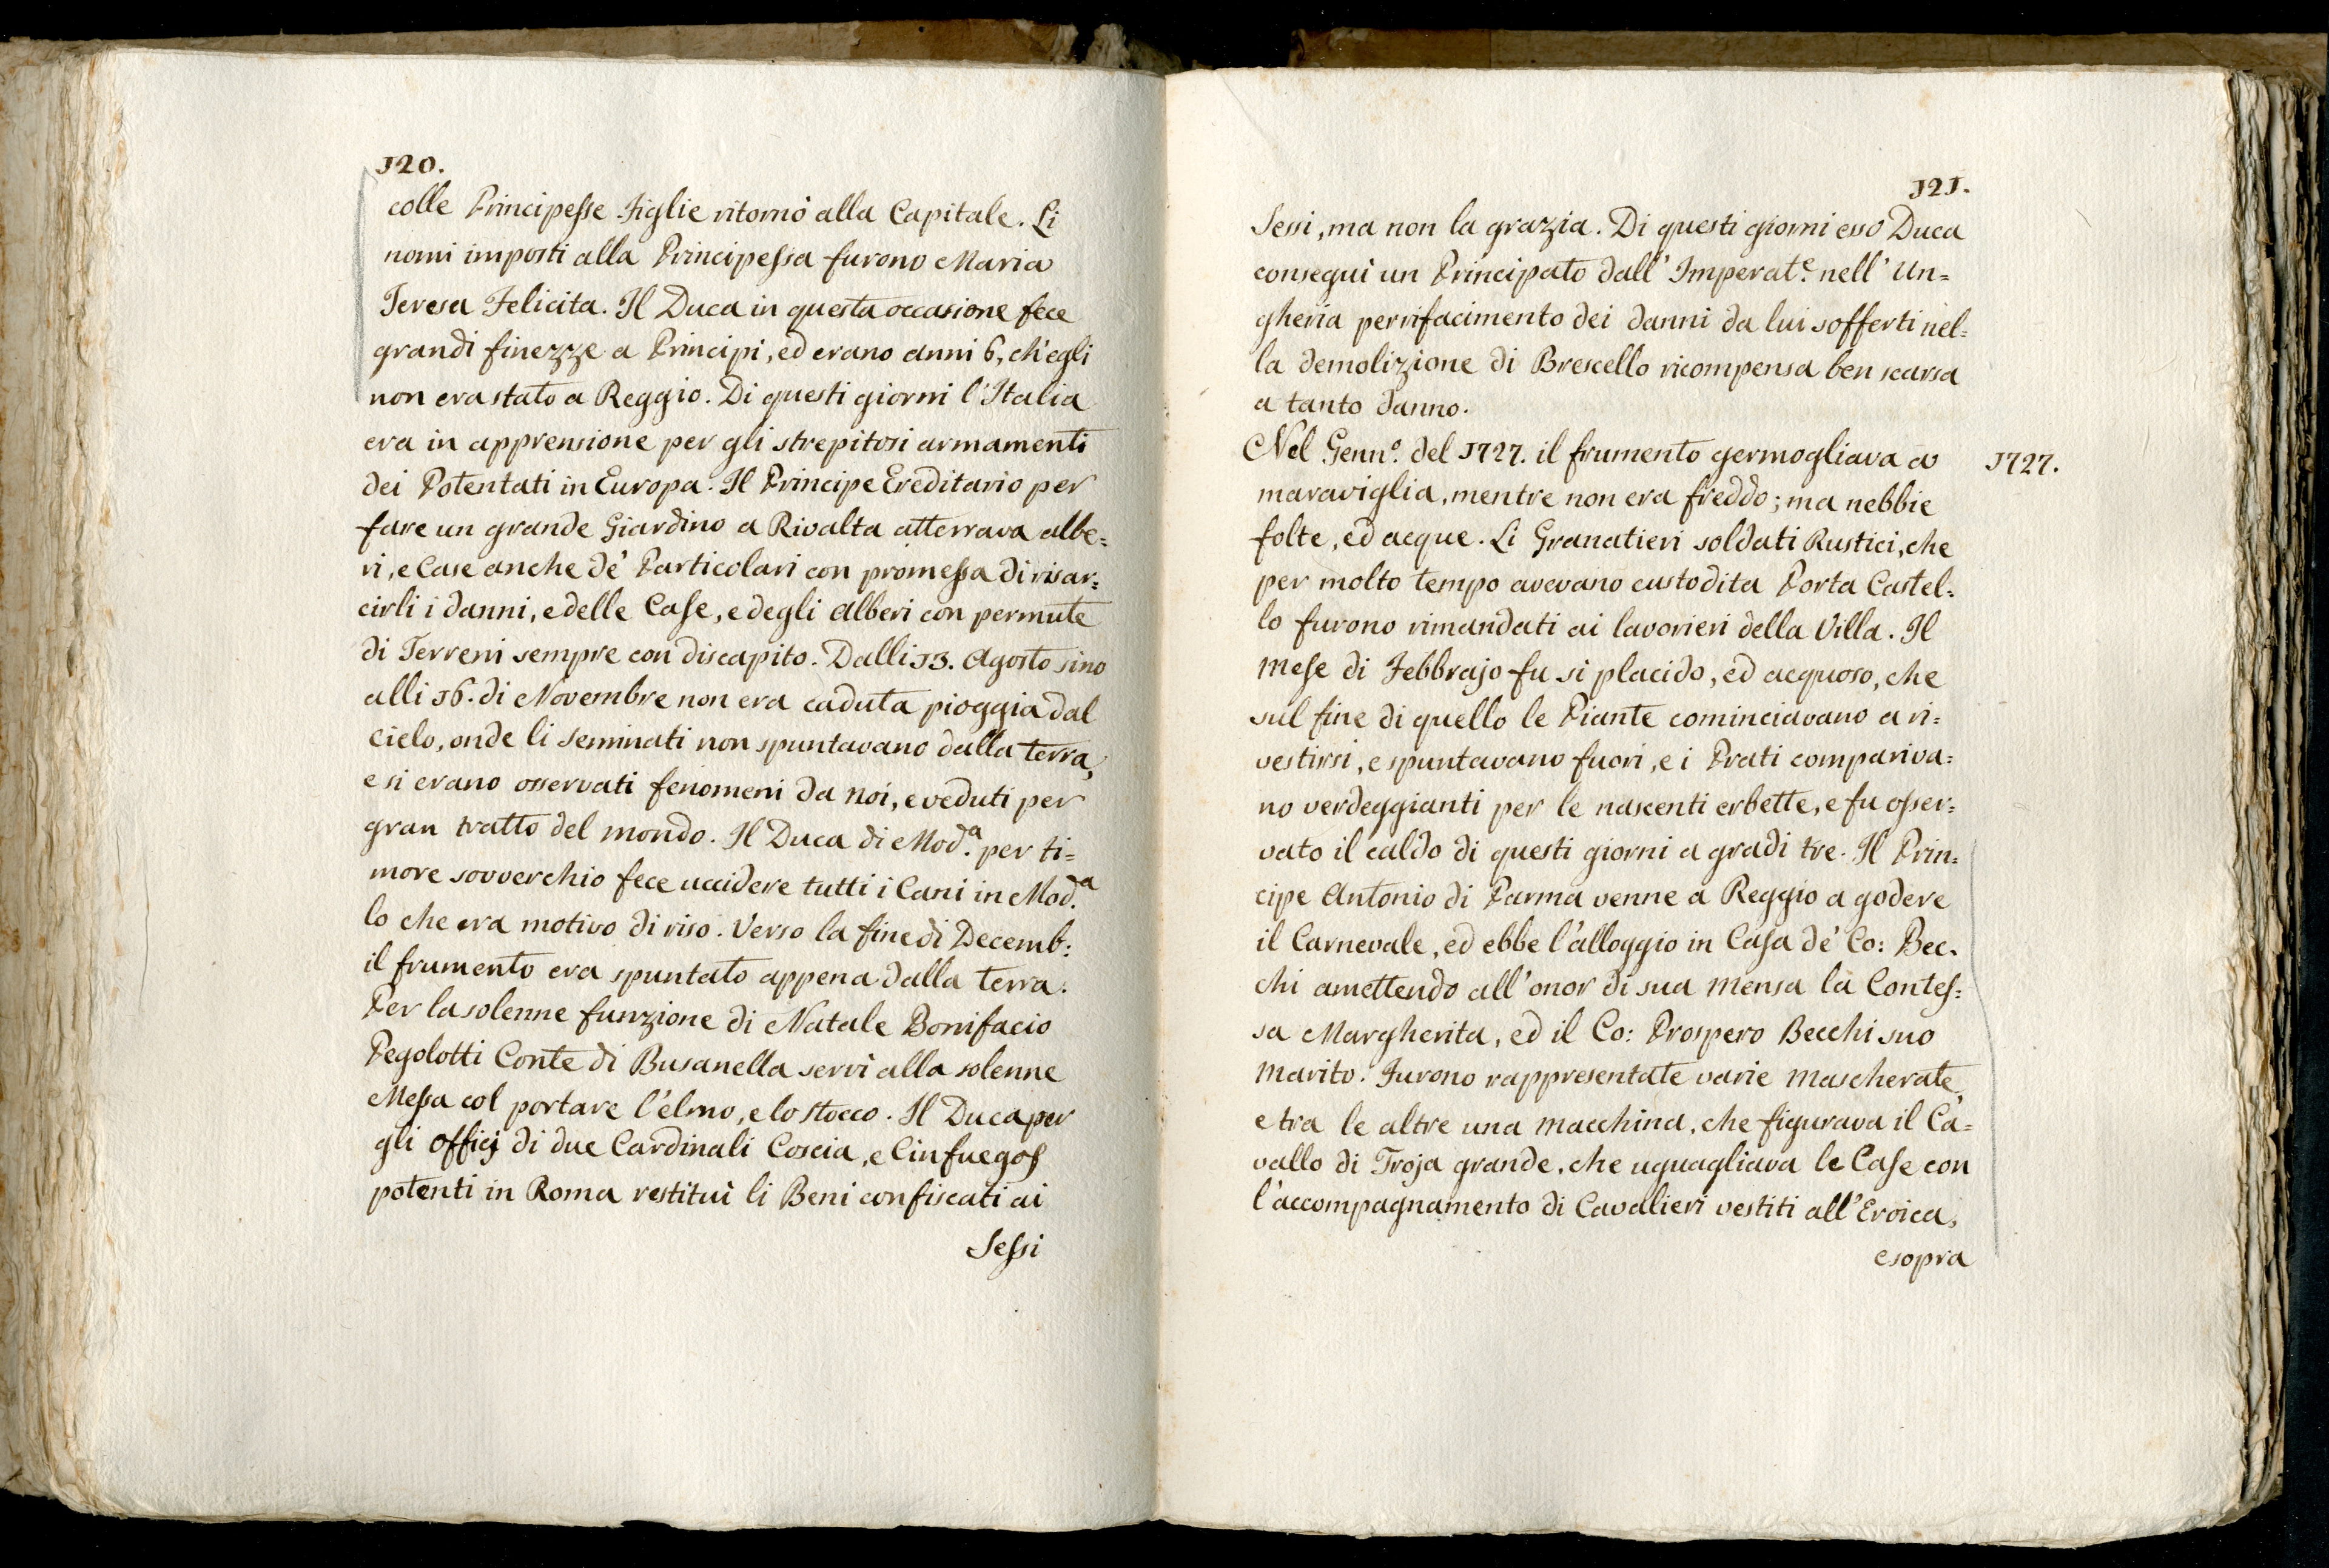 120.
colle Principesse Figlie ritornò alla Capitale. Li
nomi imposti alla Principessa furono Maria
Teresa Felicita. Il Duca in questa occasione fece
grandi finezze a Principi, ed erano anni 6, ch'egli
non era stato a Reggio. Di questi giorni l'Italia
era in apprensione per gli strepitosi armamenti
dei Potentati in Europa. Il Principe Ereditario per
fare un grande Giardino a Rivalta atterrava albe=
ri, e Case anche de' Particolari con promessa di risar=
cirli i danni, e delle Case, e degli alberi con permute
di Terreni sempre con discapito. Dalli 13. Agosto sino
alli 16. di Novembre non era caduta pioggia dal
cielo, onde li seminati non spuntavano dalla terra,
e si erano osservati fenomeni da noi, e veduti per
gran tratto del mondo. Il Duca di Mod.a per ti=
more sovverchio fece uccidere tutti i Cani in Mod.a
lo che era motivo di riso. Verso la fine di Decemb:
il frumento era spuntato appena dalla terra.
Per la solenne funzione di Natale Bonifacio
Pegolotti Conte di Busanella servì alla solenne
Messa col portare l'elmo, e lo stocco. Il Duca per
gli officj di due Cardinali Coscia, e Cinfuegos
potenti in Roma restituì li Beni confiscati ai
Sessi
121.
Sessi, ma non la grazia. Di questi giorni esso Duca
conseguì un Principato dall' Imperat.e nell' Un=
gheria per rifacimento dei danni da lui sofferti nel=
la demolizione di Brescello ricompensa ben scarsa
a tanto danno.
Nel Genn.o del 1727. il frumento germogliava a
1727.
maraviglia, mentre non era freddo; ma nebbie
folte, ed acque. Li Granatieri soldati Rustici, che
per molto tempo avevano custodita Porta Castel=
lo furono rimandati ai lavorieri della Villa. Il
mese di Febbrajo fu si placido, ed acquoso, che
sul fine di quello le Piante cominciavano a ri=
vestirsi, e spuntavano fuori, e i Prati compariva=
no verdeggianti per le nascenti erbette, e fu osser=
vato il caldo di questi giorni a gradi tre. Il Prin=
cipe Antonio di Parma venne a Reggio a godere
il Carnevale, ed ebbe l'alloggio in Casa de' Co: Bec=
chi amettendo all'onor di sua mensa la Contes=
sa Margherita, ed il Co: Prospero Becchi suo
marito. Furono rappresentate varie mascherate,
e tra le altre una macchina, che figurava il Ca=
vallo di Troja grande, che uguagliava le Case con
l'accompagnamento di Cavalieri vestiti all'Eroica,
e sopra